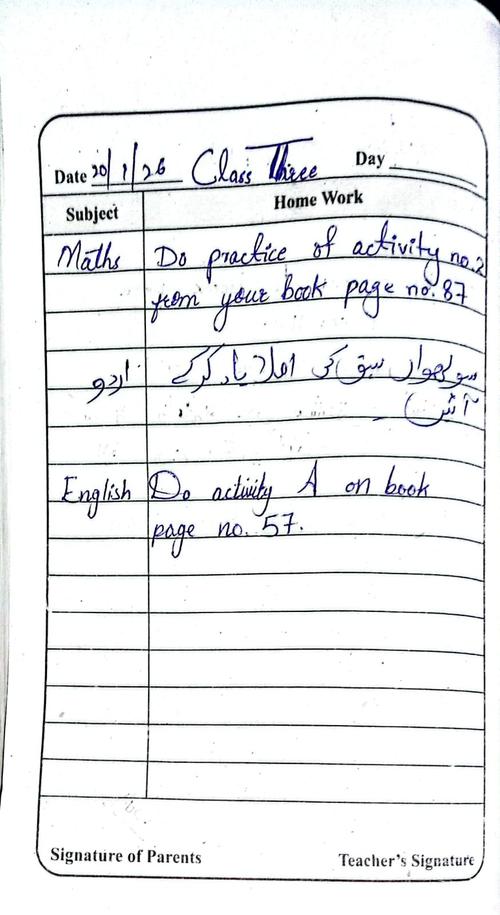 Date 20/1/26 Class Three Day
Subject Home Work
Maths Do practice of activity no.2
from your book page no. 87
اردو سولھواں سبق کی املا یاد کرکے
آئیں۔
English Do activity A on book
page no. 57.
Signature of Parents Teacher's Signature